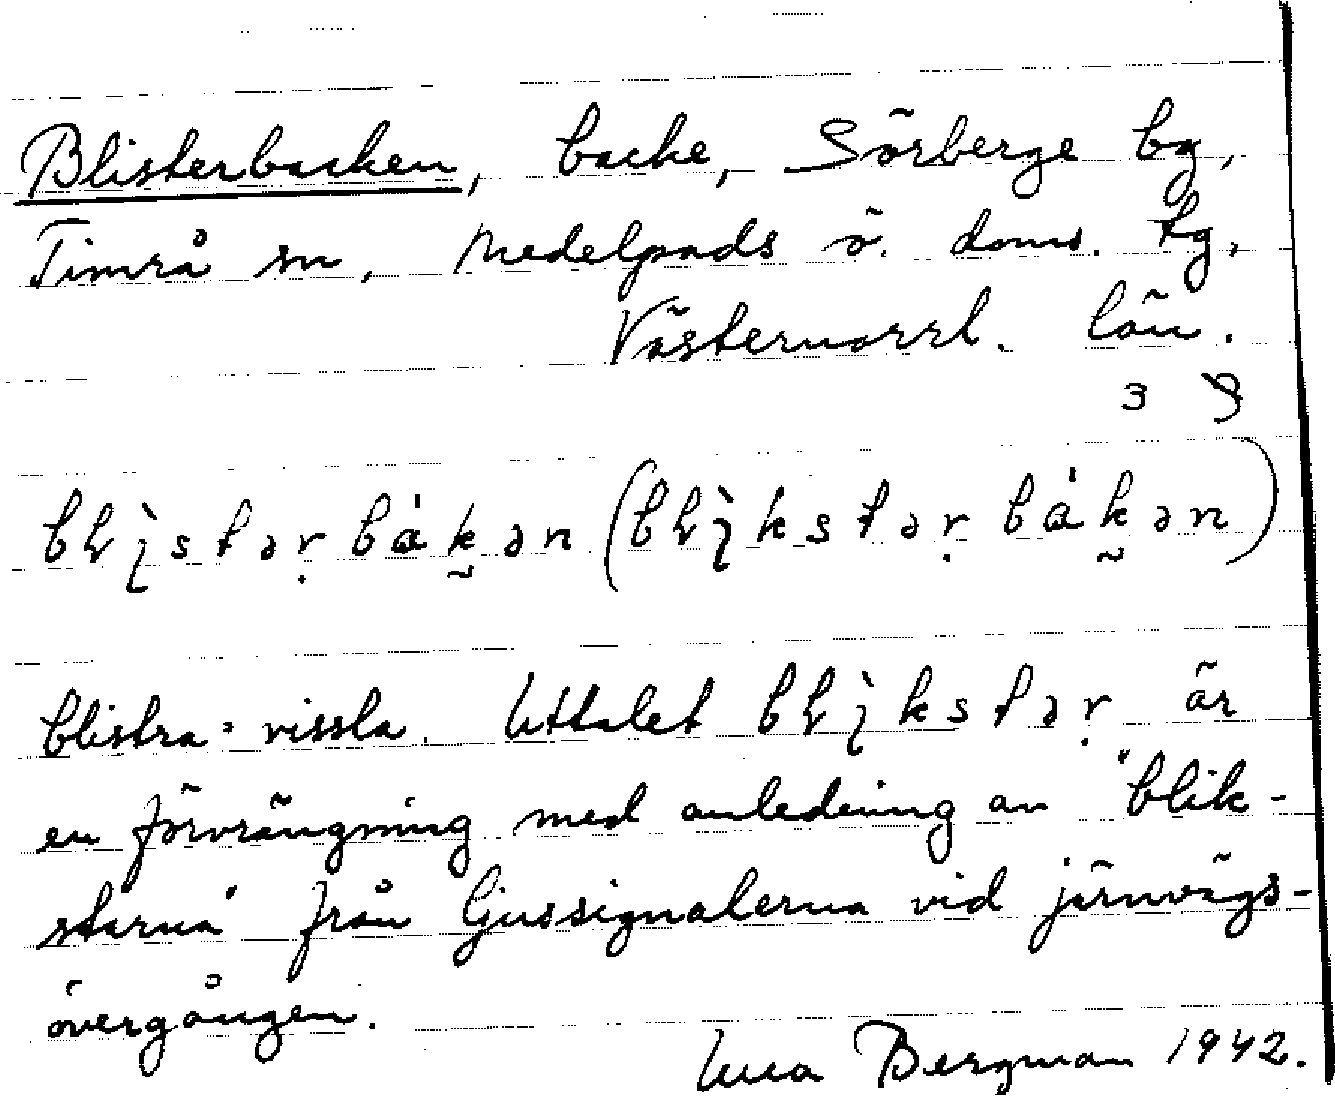 Blisterbacken, backe, Sörberge by,
Timrå sn, Medelpads ö. doms. tg,
Västernorrl. län.
blistra = vissla. Uttalet är
en förvrängning med anledning av "blik-
starna" från ljussignalerna vid järnvägs-
övergången.
Bergman 1942.